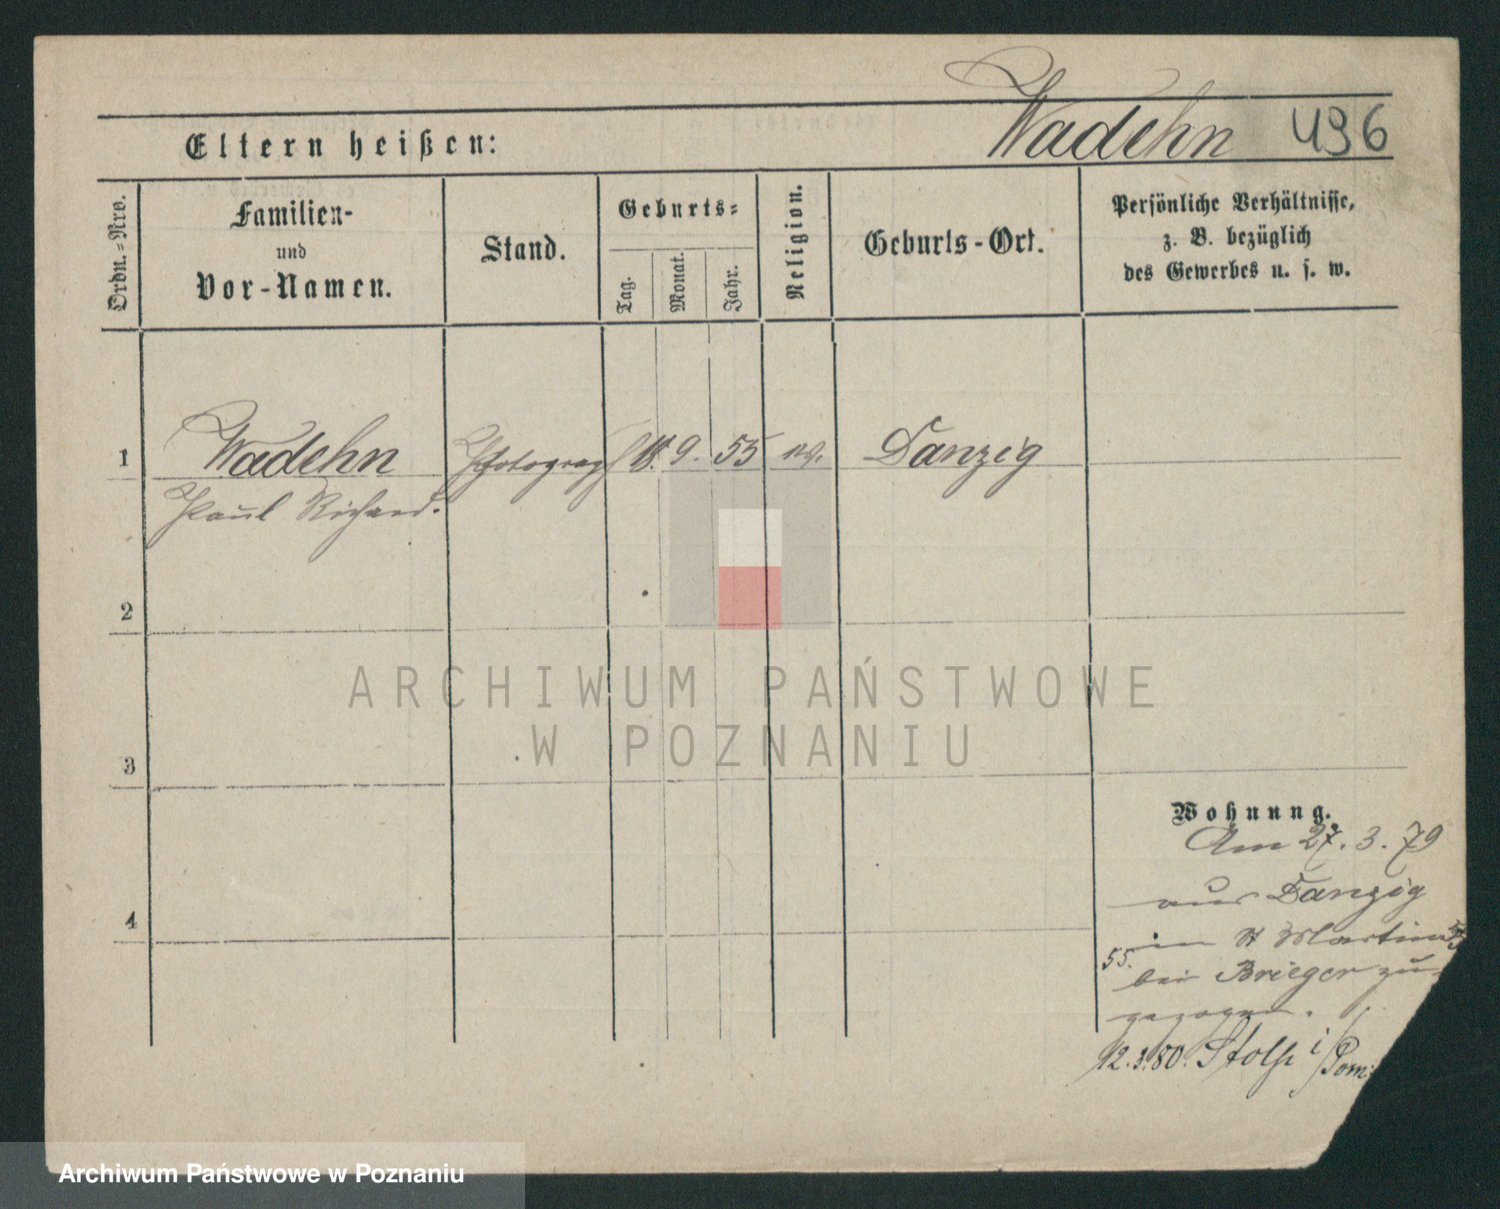 Wadehn 496
Eltern heißen:
Ordn.-Nro.
Familien-
und
Vor-Namen.
Stand.
Geburts-
Tag.
Monat.
Jahr.
Religion.
Geburts-Ort.
Persönliche Verhältnisse,
z. B. bezüglich
des Gewerbes u. s. w.
1 Wadehn Photograph 18. 9. 55 ev. Danzig
Paul Richard.
2
3
4
Wohnung.
Am 27. 3. 79
aus Danzig
in St Martin
55.
bei Brieger zu-
gezogen.
12.3.80. Stolp i/Pom:
ARCHIWUM PAŃSTWOWE
W POZNANIU
Archiwum Państwowe w Poznaniu